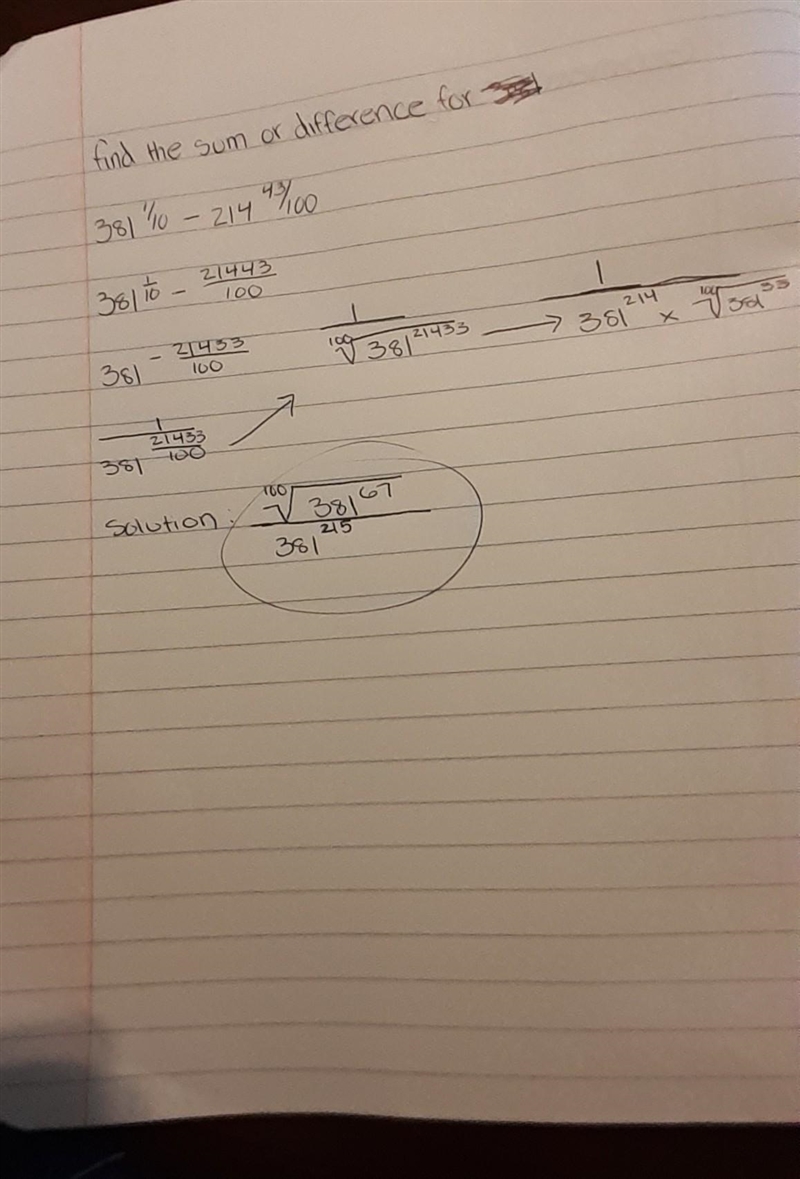 find the sum or difference for
381^1/10 - 214^43/100
381^1/10 - 21443/100
381^-21433/100
1/381^21433/100 → 1/¹⁰⁰√381^21433 → 1/381^214 × ¹⁰⁰√381^33
Solution: ¹⁰⁰√381^67/381^215